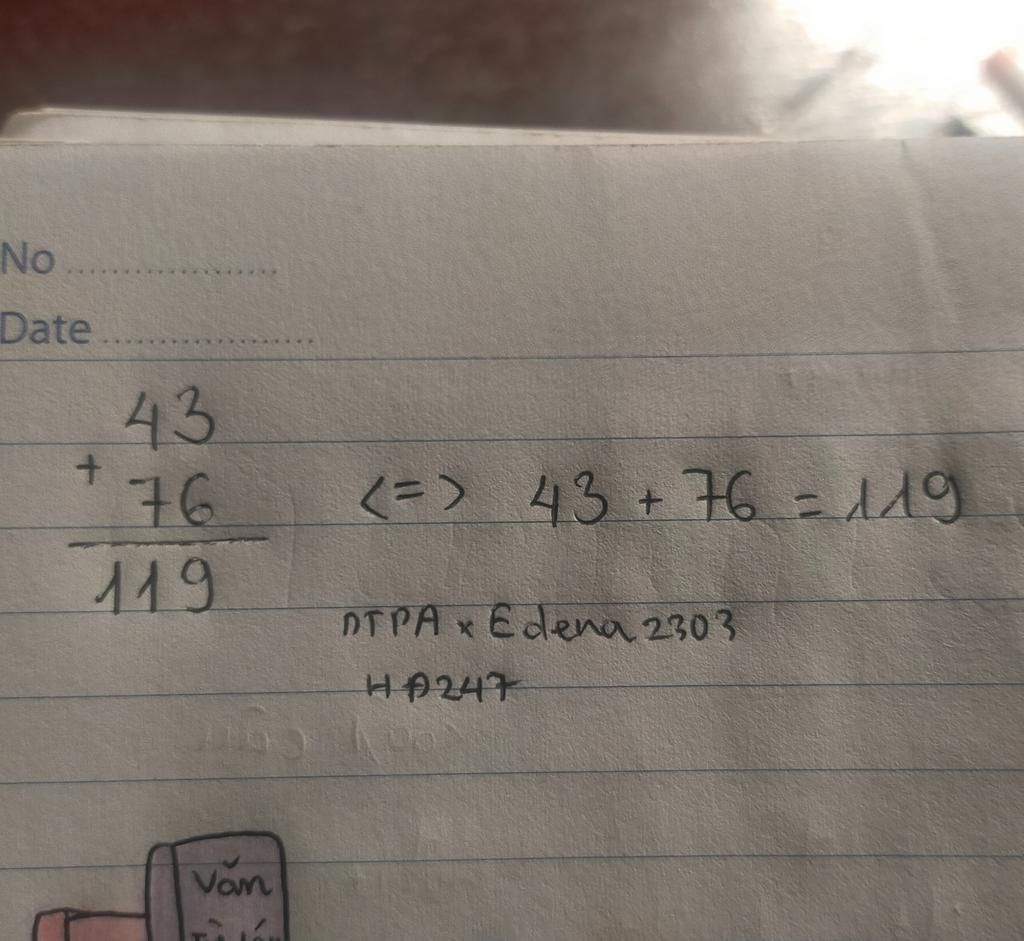 No ..................
Date ..................
43
+
76
119
<=> 43 + 76 = 119
DTPA x Edena 2303
HĐ247
Văn